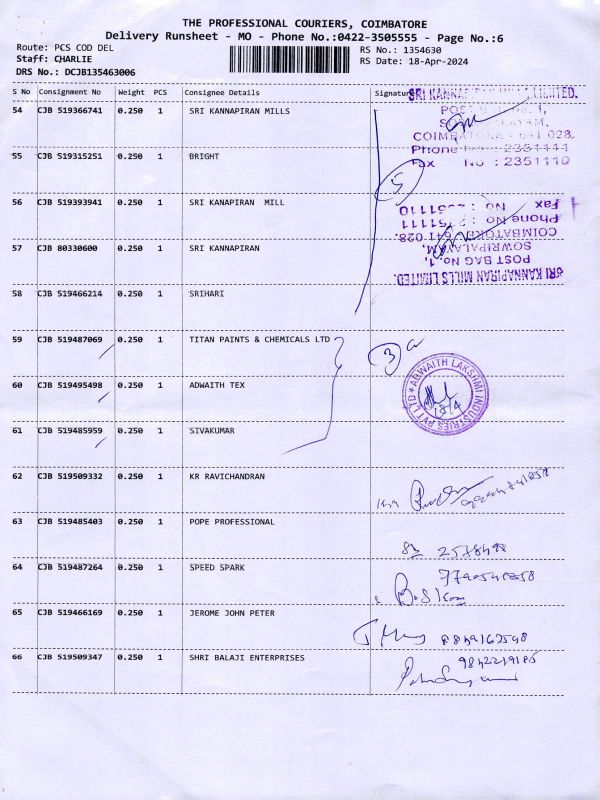 THE PROFESSIONAL COURIERS, COIMBATORE
Delivery Runsheet - MO - Phone No.:0422-3505555 - Page No.:6
Route: PCS COD DEL
RS No.: 1354630
Staff: CHARLIE
RS Date: 18-Apr-2024
DRS No.: DCJB135463006
S No Consignment No Weight PCS Consignee Details Signature
54 CJB 519366741 0.250 1 SRI KANNAPIRAN MILLS
SRI KANNAPIRAN MILLS LIMITED.
COIMBATORE - 641 028.
Phone No : 2351111
Fax No : 2351110
55 CJB 519315251 0.250 1 BRIGHT
5
56 CJB 519393941 0.250 1 SRI KANAPIRAN MILL
57 CJB 80330600 0.250 1 SRI KANNAPIRAN
SRI KANNAPIRAN MILLS LIMITED.
POST BAG No.1,
SOWRIPALAYAM,
COIMBATORE 641 028.
Phone No : 2351111
Fax No : 2351110
58 CJB 519466214 0.250 1 SRIHARI
59 CJB 519487069 0.250 1 TITAN PAINTS & CHEMICALS LTD
3
60 CJB 519495498 0.250 1 ADWAITH TEX
ADWAITH LAKSHMI INDUSTRIES PVT LTD
18/4
61 CJB 519485959 0.250 1 SIVAKUMAR
62 CJB 519509332 0.250 1 KR RAVICHANDRAN
63 CJB 519485403 0.250 1 POPE PROFESSIONAL
64 CJB 519487264 0.250 1 SPEED SPARK
65 CJB 519466169 0.250 1 JEROME JOHN PETER
66 CJB 519509347 0.250 1 SHRI BALAJI ENTERPRISES